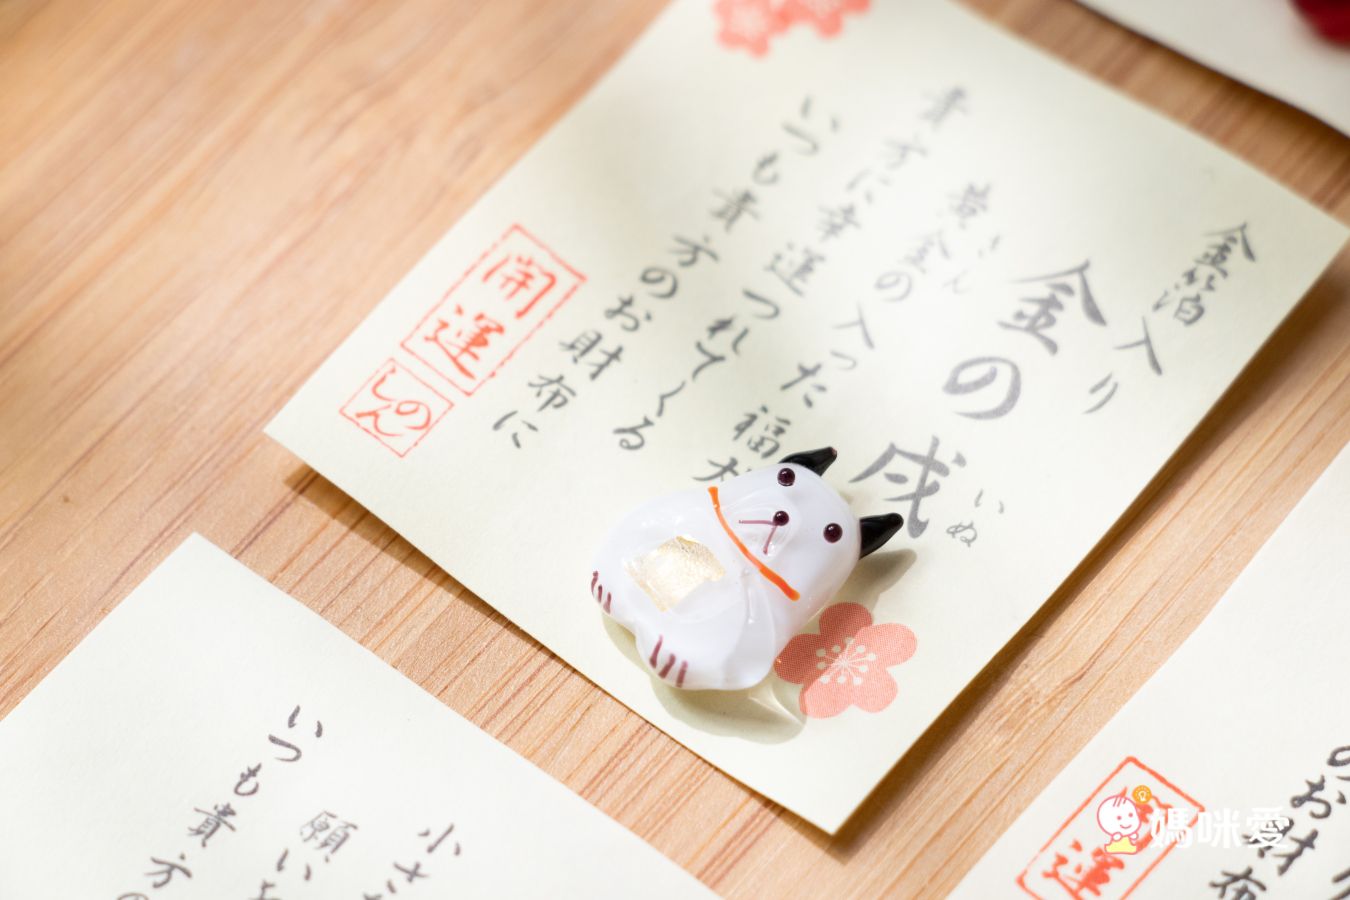 金箔入り
金の戌
いぬ
きん
黄金の入った福
貴方に幸運つれてくる
いつも貴方のお財布に
開運
しんの
小さ
願いを
いつも貴方の
のお財
布
運
媽咪愛